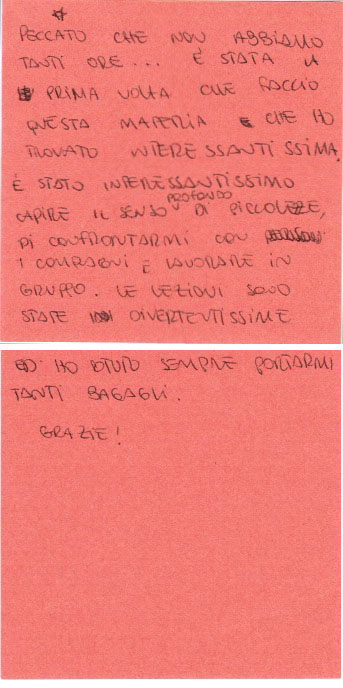 PECCATO CHE NON ABBIAMO
TANTI ORE... È STATA LA
PRIMA VOLTA CHE FACCIO
QUESTA MATERIA E CHE HO
TROVATO INTERESSANTISSIMA.
È STATO INTERESSANTISSIMO
PROFONDO
CAPIRE IL SENSO DI PICCOLEZZE,
DI CONFRONTARMI CON
I COMPAGNI E LAVORARE IN
GRUPPO. LE LEZIONI SONO
STATE DIVERTENTISSIME
ED HO POTUTO SEMPRE PORTARMI
TANTI BAGAGLI.
GRAZIE!